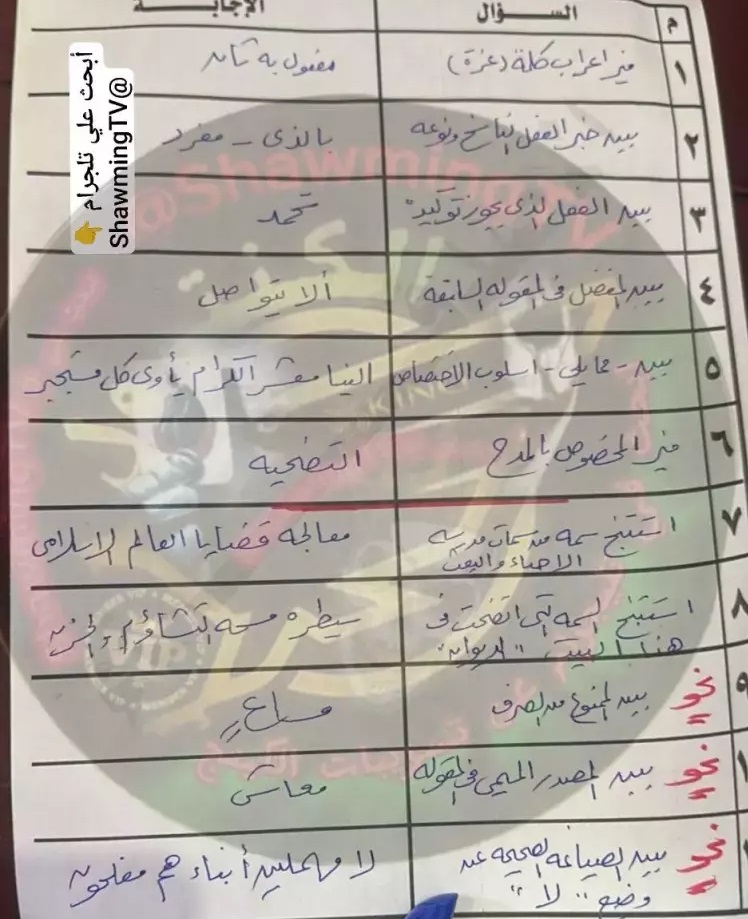 م السؤال الإجابة
١ ميز اعراب كلمة (غزة) مفعول به ثان
٢ بين خبر الفعل الناسخ ونوعه بالذى - مفرد
٣ بين الفعل الذى يجوز توكيده تحمد
٤ بين المفضل فى المقوله السابقة ألا يتواصل
٥ بين - مما يلى - اسلوب الاختصاص الينا معشر الكرام يأوى كل مستجير
٦ ميز المخصوص بالمدح التضحيه
٧ استنتج سمه من سمات مدرسه
الاحياء والبعث
معالجه قضايا العالم الاسلامى
٨ استنتج السمه التى اتضحت فى
هذا البيت "الديوان"
سيطره مسحه التشاؤم والحزن
٩ نحو بين الممنوع من الصرف مساعٍ
١ نحو بين المصدر الميمى فى المقوله معاش
١ نحو بين الصياغه الصحيحه عند
وضع "لا"
لا مهملين أبناء هم مفلحون
أبحث علي تلجرام 👉
@ShawmingTV
@ShawmingTV
VIP